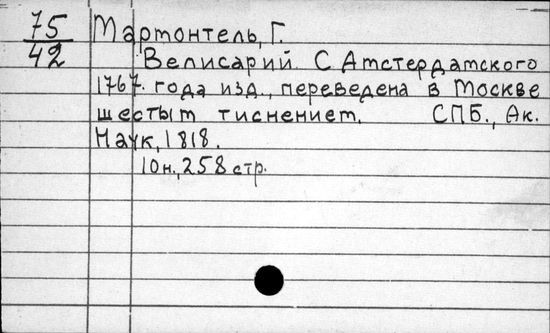 75
42
Мармонтель, Г.
Велисарий. С Амстердамского
1767. года изд., переведена в Москве
шестым тиснением. СПБ., Ак.
Наук, 1818.
10н., 258 стр.